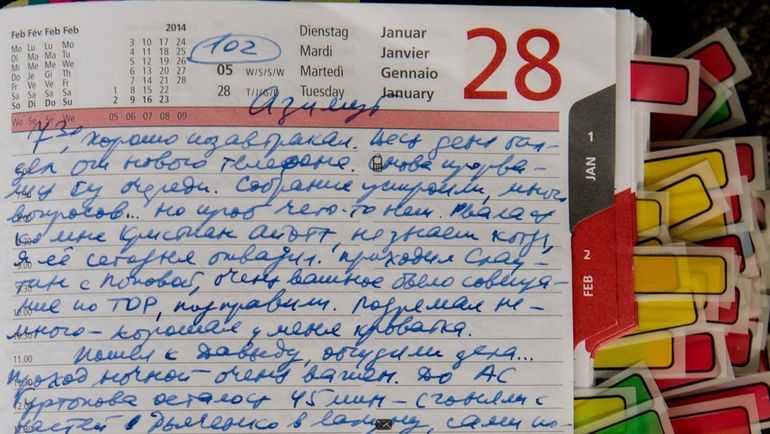 Feb Fév Feb Feb 2014
Mo Lu Lu Mo 3 10 17 24
Di Ma Ma Tu 4 11 18 25
Mi Me Me We 5 12 19 26
Do Je Gi Th 6 13 20 27
Fr Ve Ve Fr 7 14 21 28
Sa Sa Sa Sa 1 8 15 22
So Di Do Su 2 9 16 23
Wo Se Se We 05 06 07 08 09
102
05 W/S/S/W
28 T/J/G/D
Dienstag Januar
Mardi Janvier
Martedì Gennaio
Tuesday January
28
Азимут
7³⁰, хорошо позавтракал. Весь день
от нового телефона. Снова прорва
без очереди. Собрание устроили, много
вопросов... но проб чего-то нет. Рвалась
ко мне Кристиан Аютт, не знаем когда
я её сегодня
тин с Поповой, очень важное было совеща-
ние по TDP, подправили. Подремал не-
много - хорошая у меня кроватка.
Пошёл к Давыду, обсудили дела...
Проход ночной очень важен. До АС
осталось 45 мин -
Дьяченко в сами по-
9.00
9.30
10.00
10.30
11.00
12.00
1
JAN
2
FEB